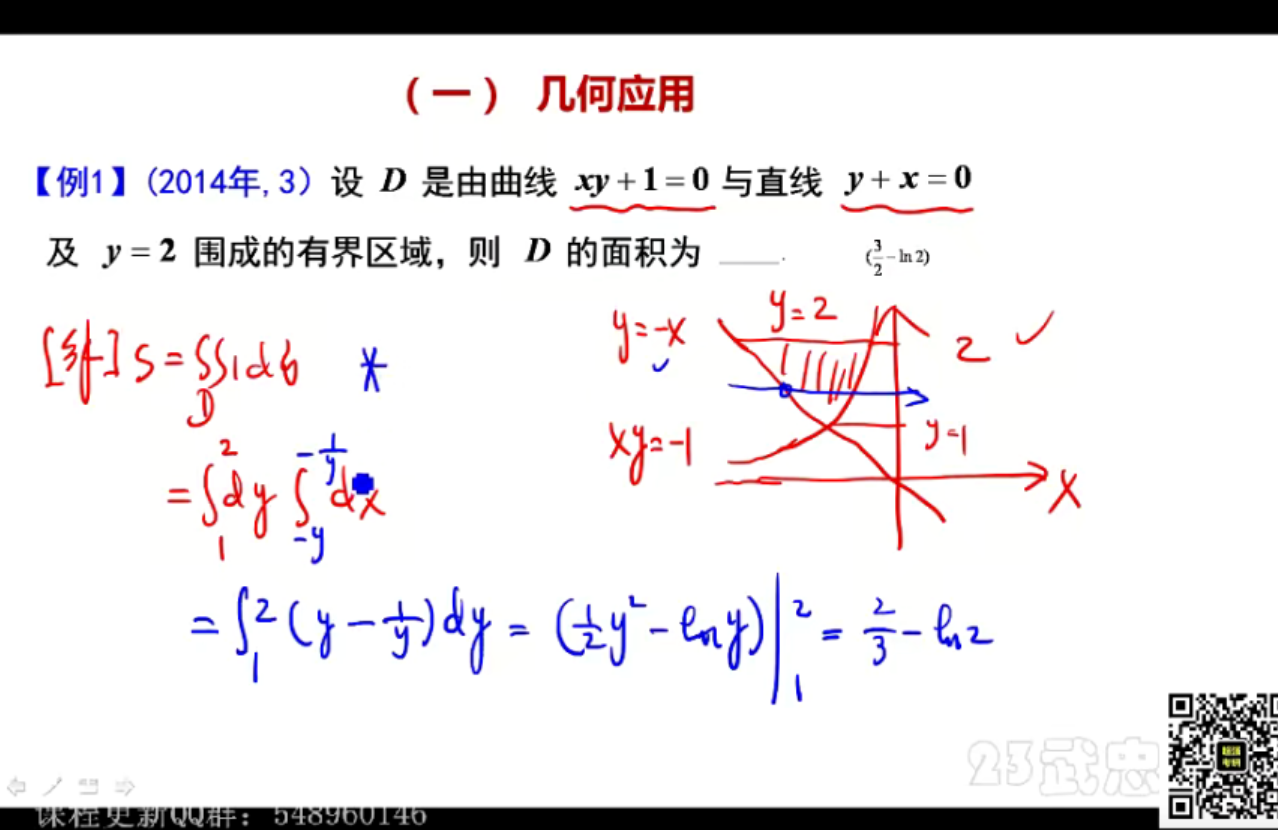 （一） 几何应用
【例1】(2014年,3）设 D 是由曲线 xy + 1 = 0 与直线 y + x = 0
及 y = 2 围成的有界区域，则 D 的面积为 ____. (3/2 − ln 2)
[解] S = ∬_D 1 dσ
y = -x
y = 2
2
xy = -1
y = 1
x
= ∫_1^2 dy ∫_{-y}^{-1/y} dx
= ∫_1^2 (y - 1/y) dy = (1/2 y² - ln y) |_1^2 = 2/3 - ln 2
23武忠
课程更新QQ群：548960146